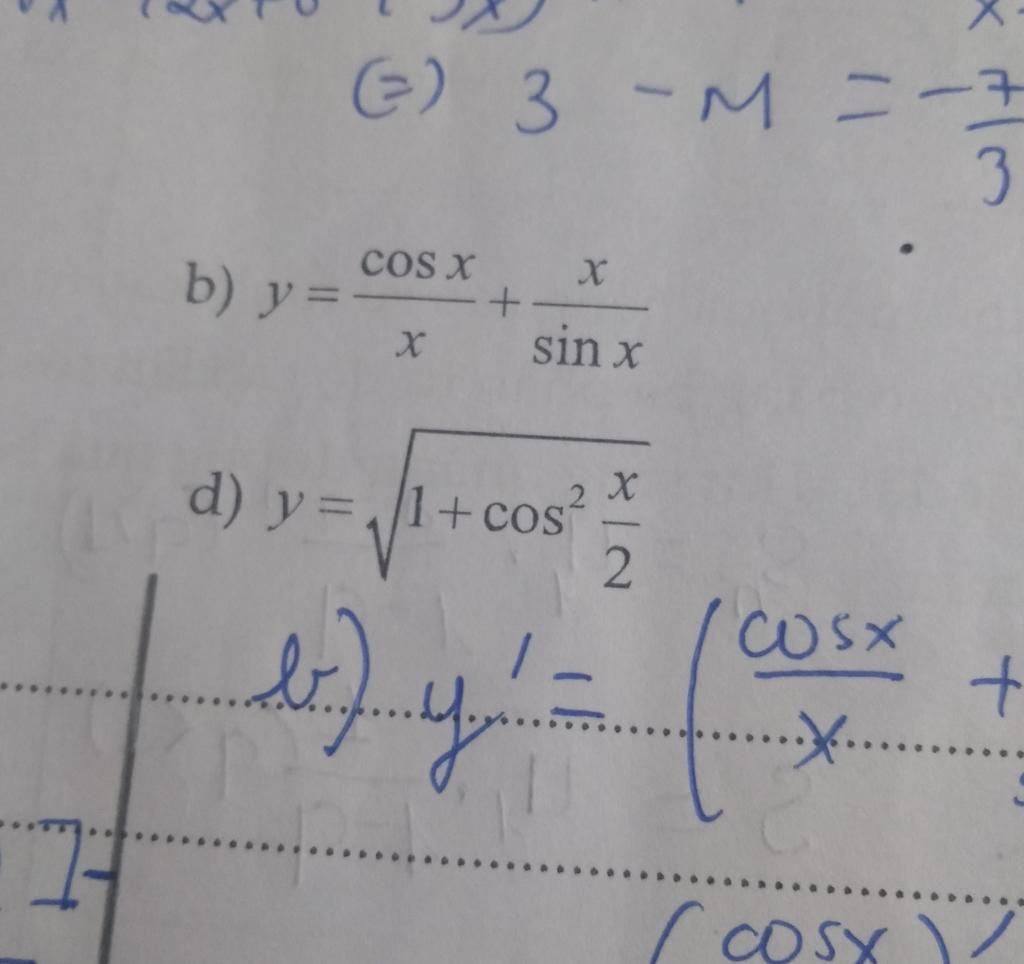 (=) 3 - M = -7/3
b) y = cos x / x + x / sin x
d) y = √(1 + cos² x/2)
b) y' = ( cosx / x +
(cosx)'